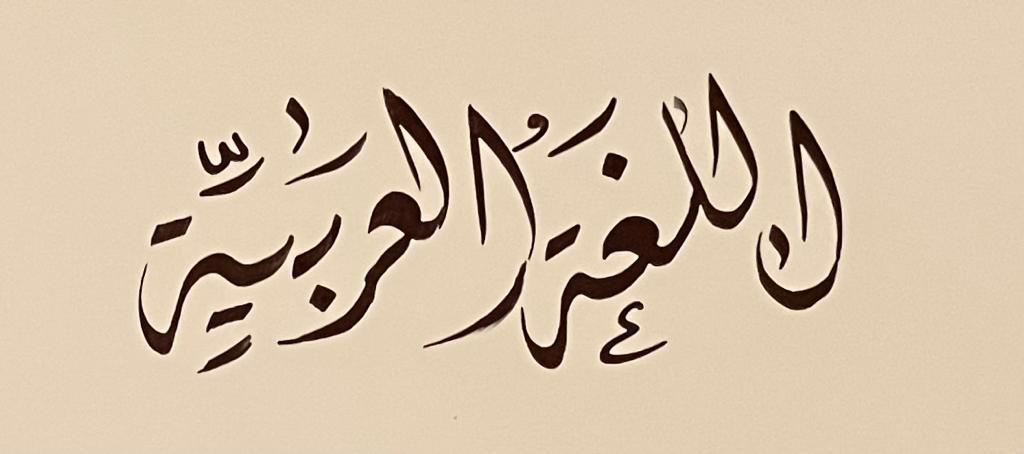 اللغة العربيّة